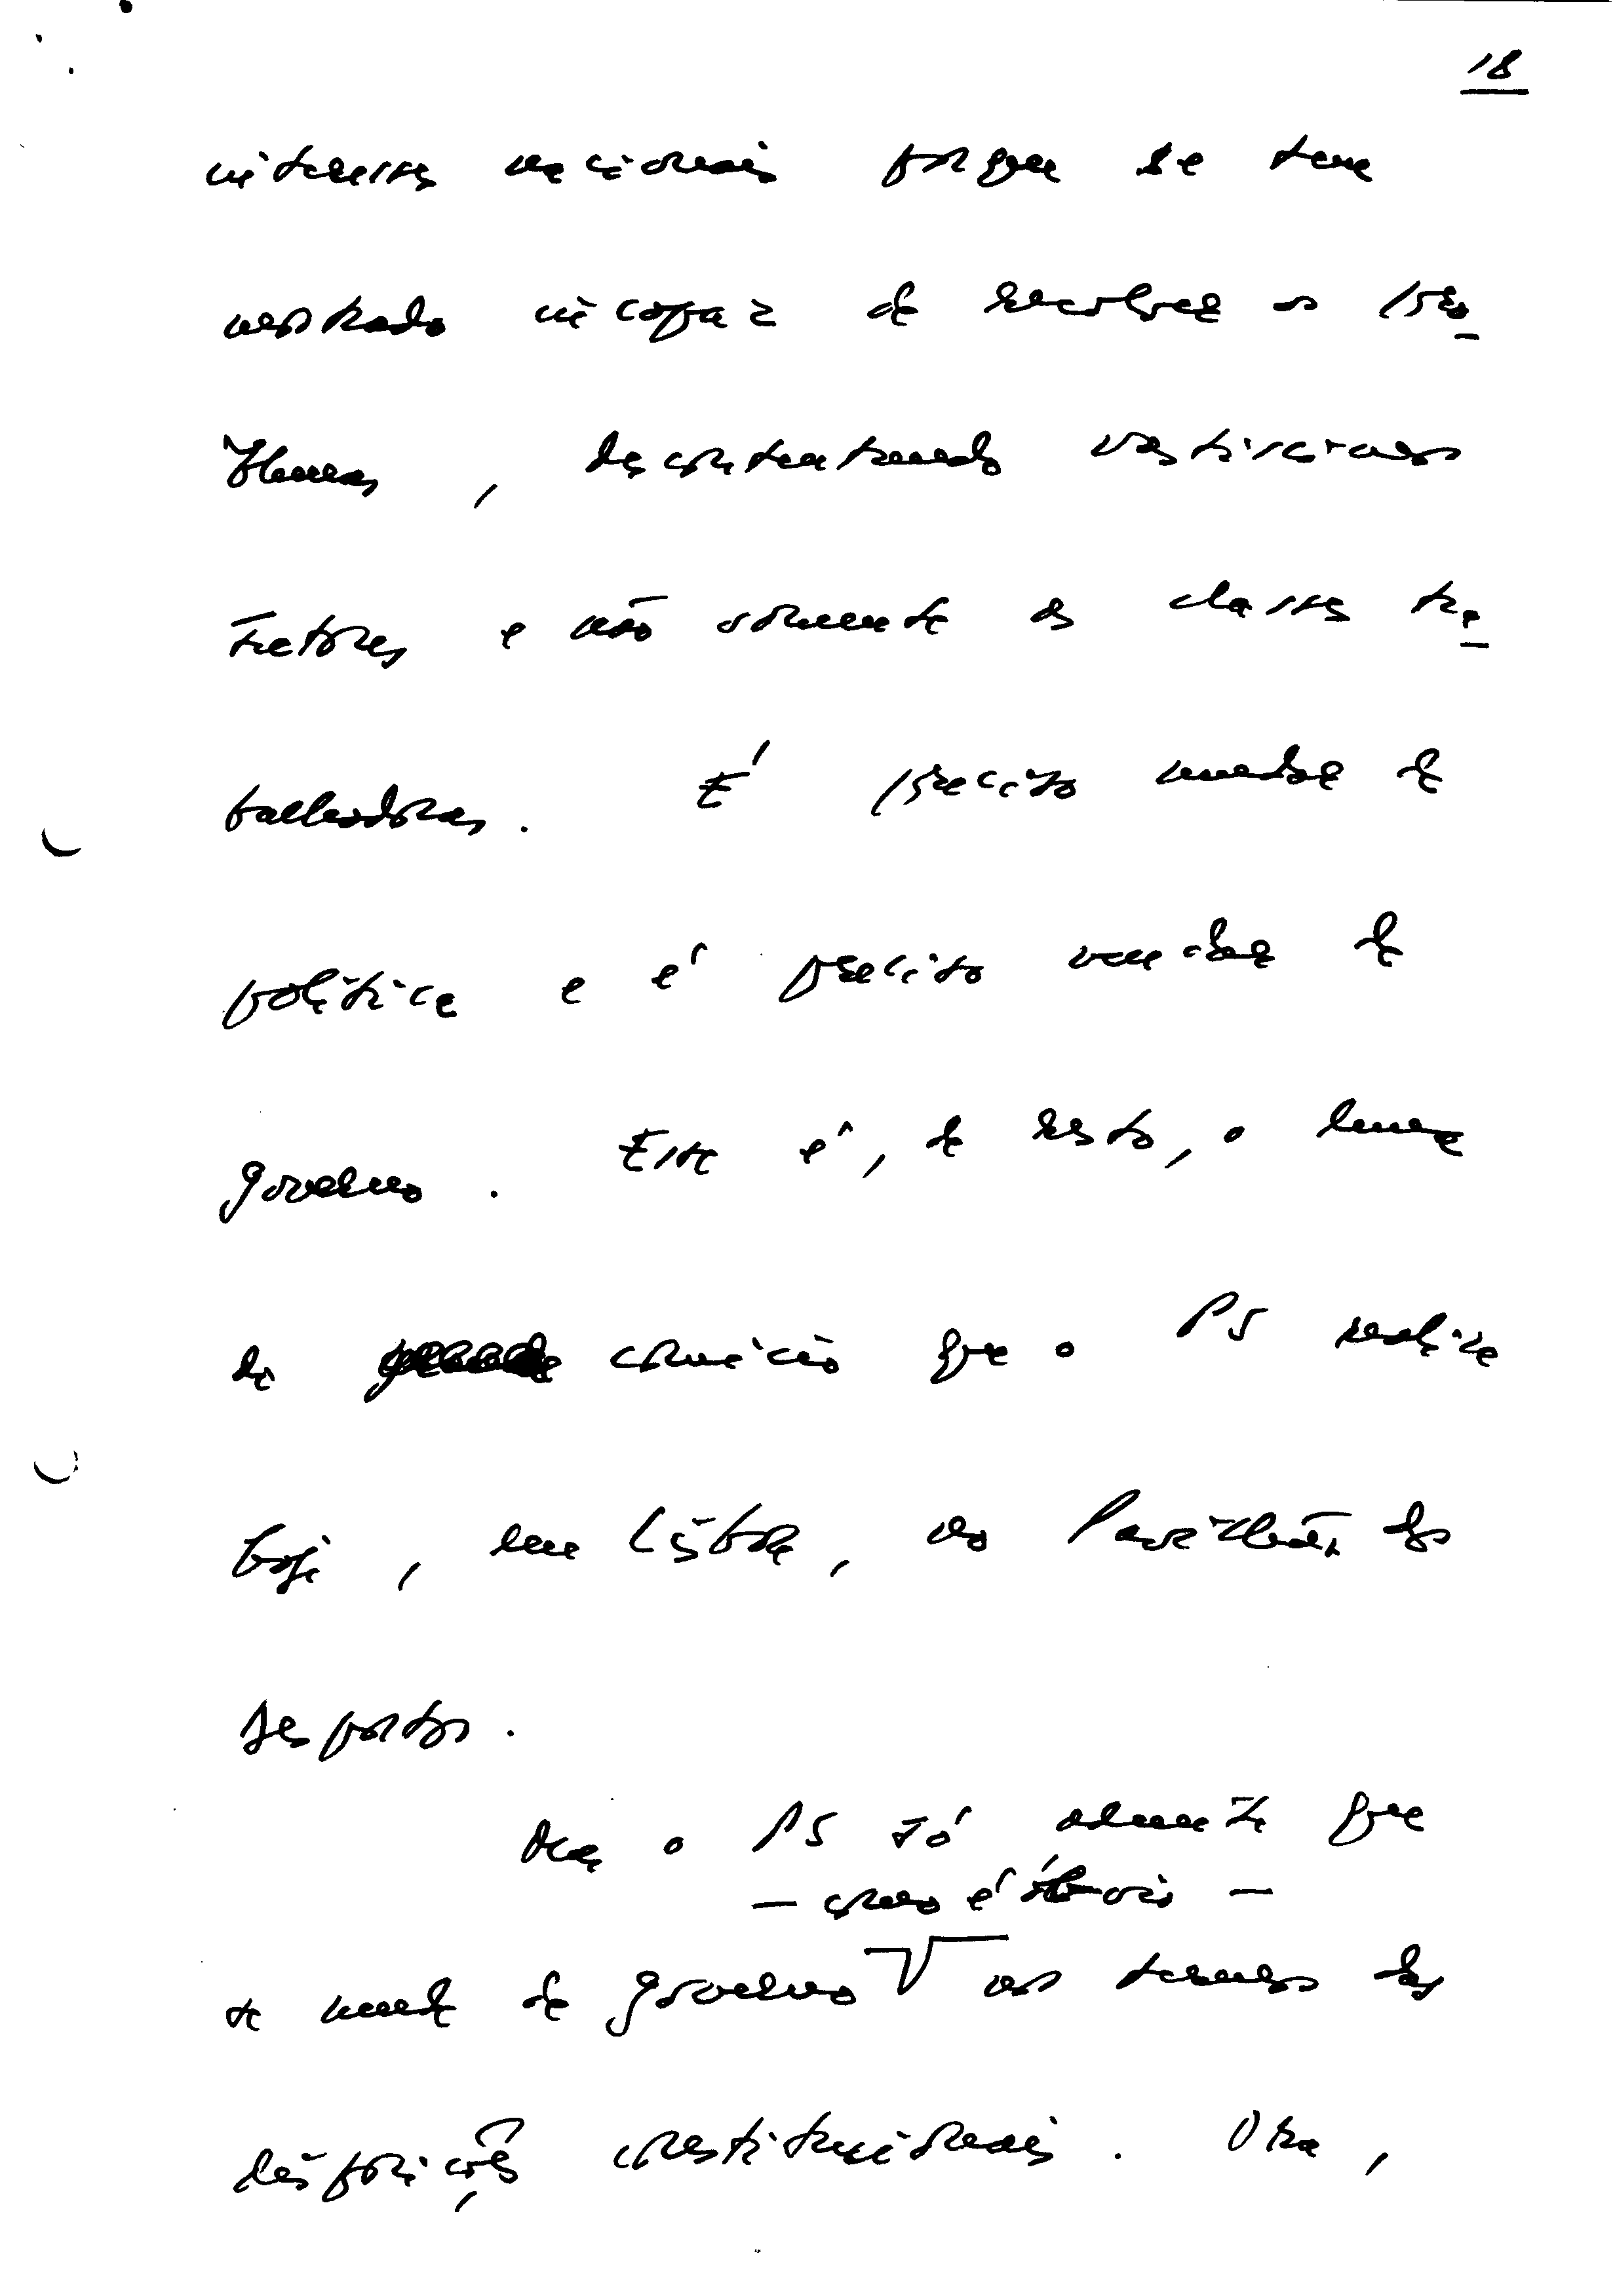 18
interesses nacionais porque se tem
mostrado incapaz de resolver os pro-
blemas, descontentando vastíssimos
sectores e não somente as classes tra-
balhadoras. É preciso mudar de
política e é preciso mudar de
governo. Este é, de resto, o lema
do comício que o PS realiza
hoje, em Lisboa, no Pavilhão dos
Desportos.
Mas o PS só admite que
— como é óbvio —
se mude de governo nos termos das
disposições constitucionais. Ora,